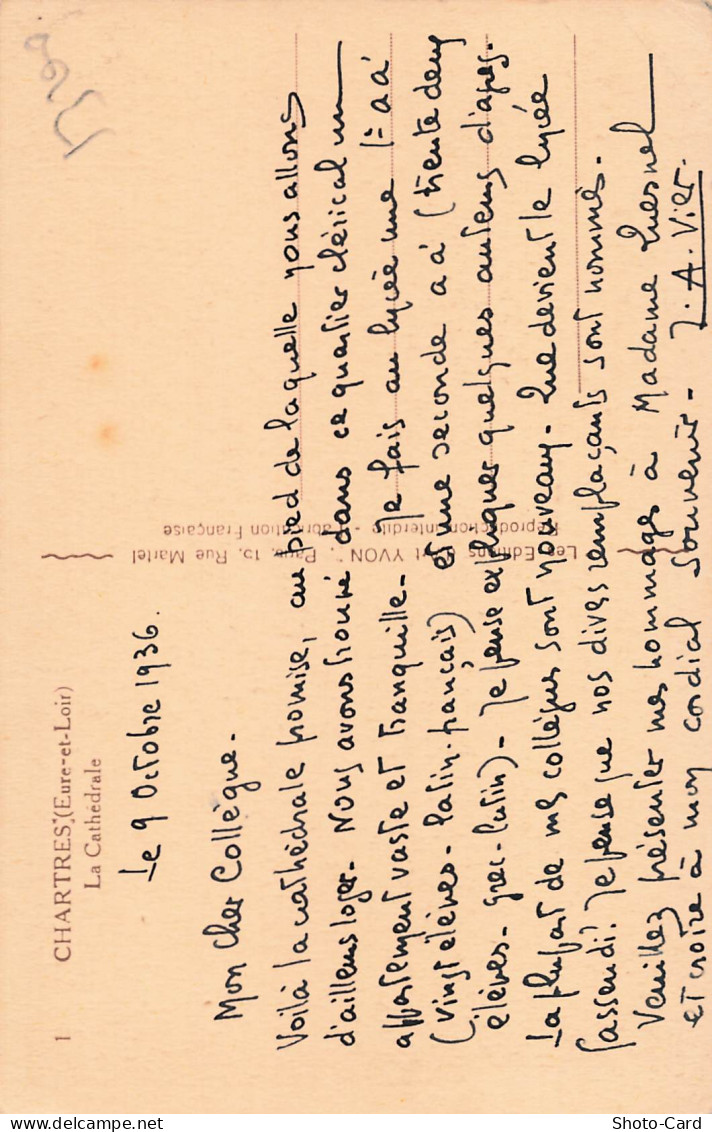 1 CHARTRES (Eure-et-Loir)
La Cathédrale
Le 9 Octobre 1936.
Mon Cher Collègue.
Voilà la cathédrale promise, au pied de laquelle nous allons
d'ailleurs loger. Nous avons trouvé dans ce quartier clérical un
appartement vaste et tranquille. Je fais au lycée une 1ère A A'
(vingt élèves. latin. français) et une seconde A A' (trente deux
élèves. grec-latin). Je pense expliquer quelques auteurs d'agreg.
La plupart de mes collègues sont nouveaux. Que devient le lycée
Gassendi? Je pense que nos divers remplaçants sont nommés.
Veuillez présenter mes hommages à Madame
et croire à mon cordial souvenir. J. A. Vier.
Les Éditions d'Art YVON, Paris, 15, Rue Martel
Reproduction interdite - Fabrication Française
Shoto-Card